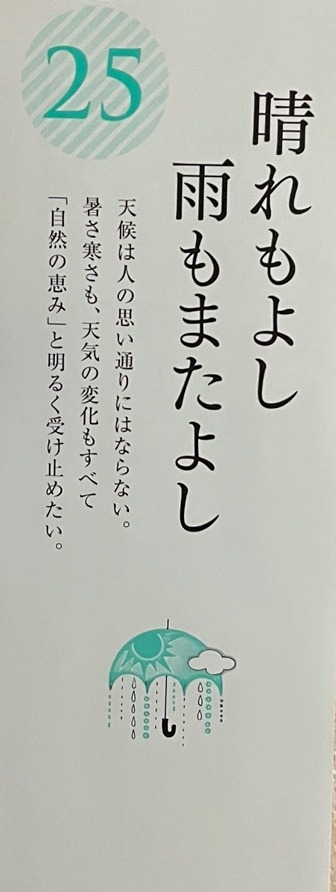 25
晴れもよし
雨もまたよし
天候は人の思い通りにはならない。
暑さ寒さも、天気の変化もすべて
「自然の恵み」と明るく受け止めたい。